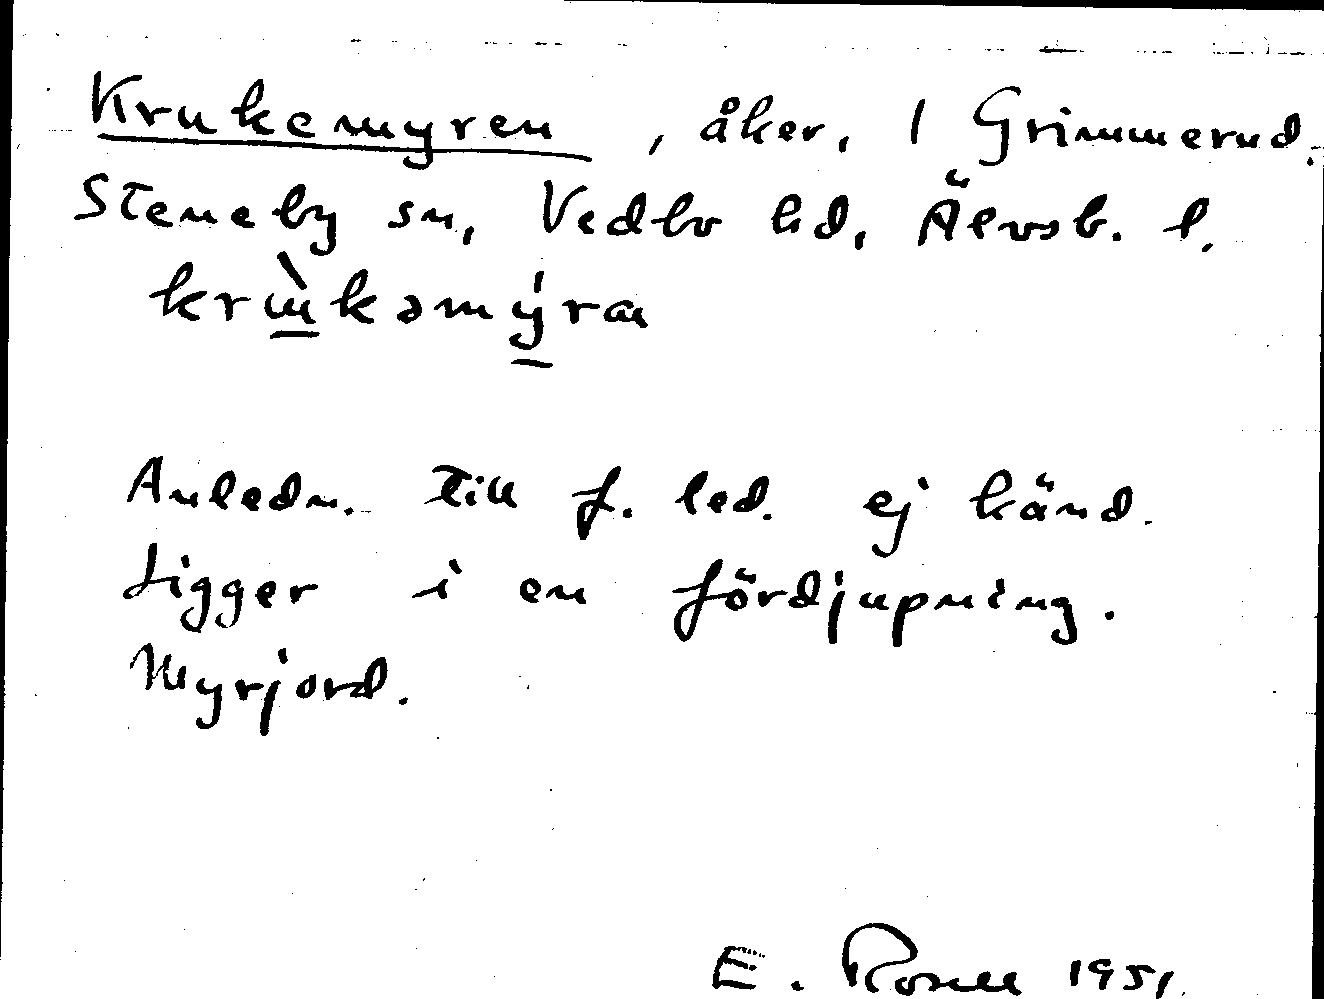 Krukemyren, åker, 1 Grimmerud.
Steneby sn, Vedbo hd, Älvsb. l.
krùkəmýran
Anledn. till f. led. ej känd.
Ligger i en fördjupning.
Myrjord.
E. Rosell 1951.